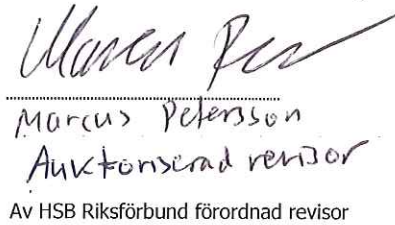 Marcus Petersson
Auktoriserad revisor
Av HSB Riksförbund förordnad revisor